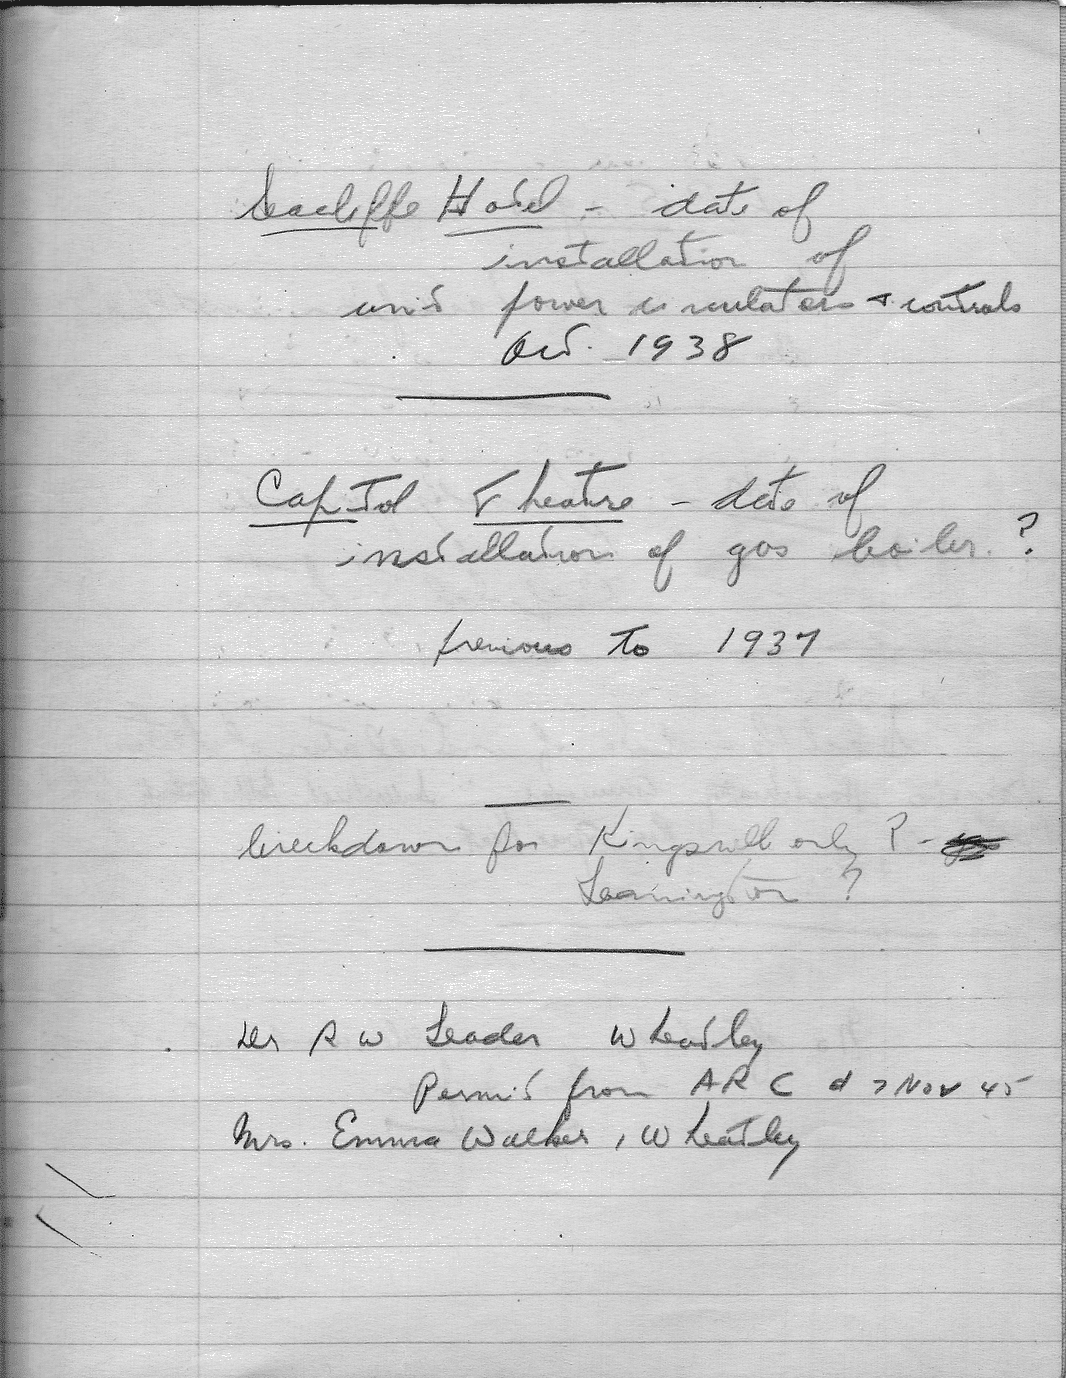 Seacliffe Hotel - date of
installation of
unit power circulators + controls
Oct. 1938
Capitol Theatre - date of
installation of gas boiler. ?
previous to 1937
breakdown for Kingsville only ? -
Leamington ?
R W Leader Wheatley
Permit from A R C d 7 Nov 45
Mrs. Emma Walker, Wheatley